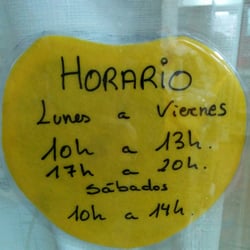 HORARIO
Lunes a Viernes
10h a 13h.
17h a 20h.
Sábados
10h a 14h.